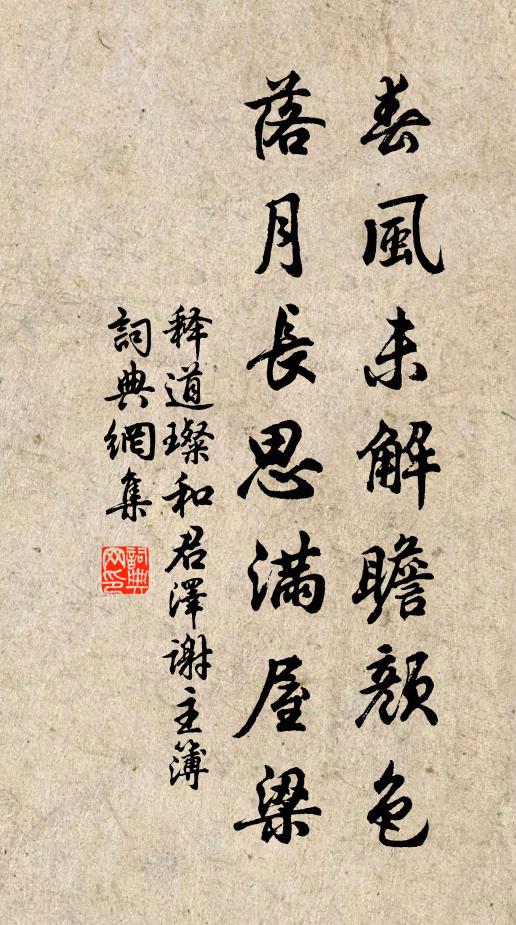 春風未解瞻顏色
落月長思滿屋梁
释道璨和君澤謝主簿
詞典網集
詞典网印